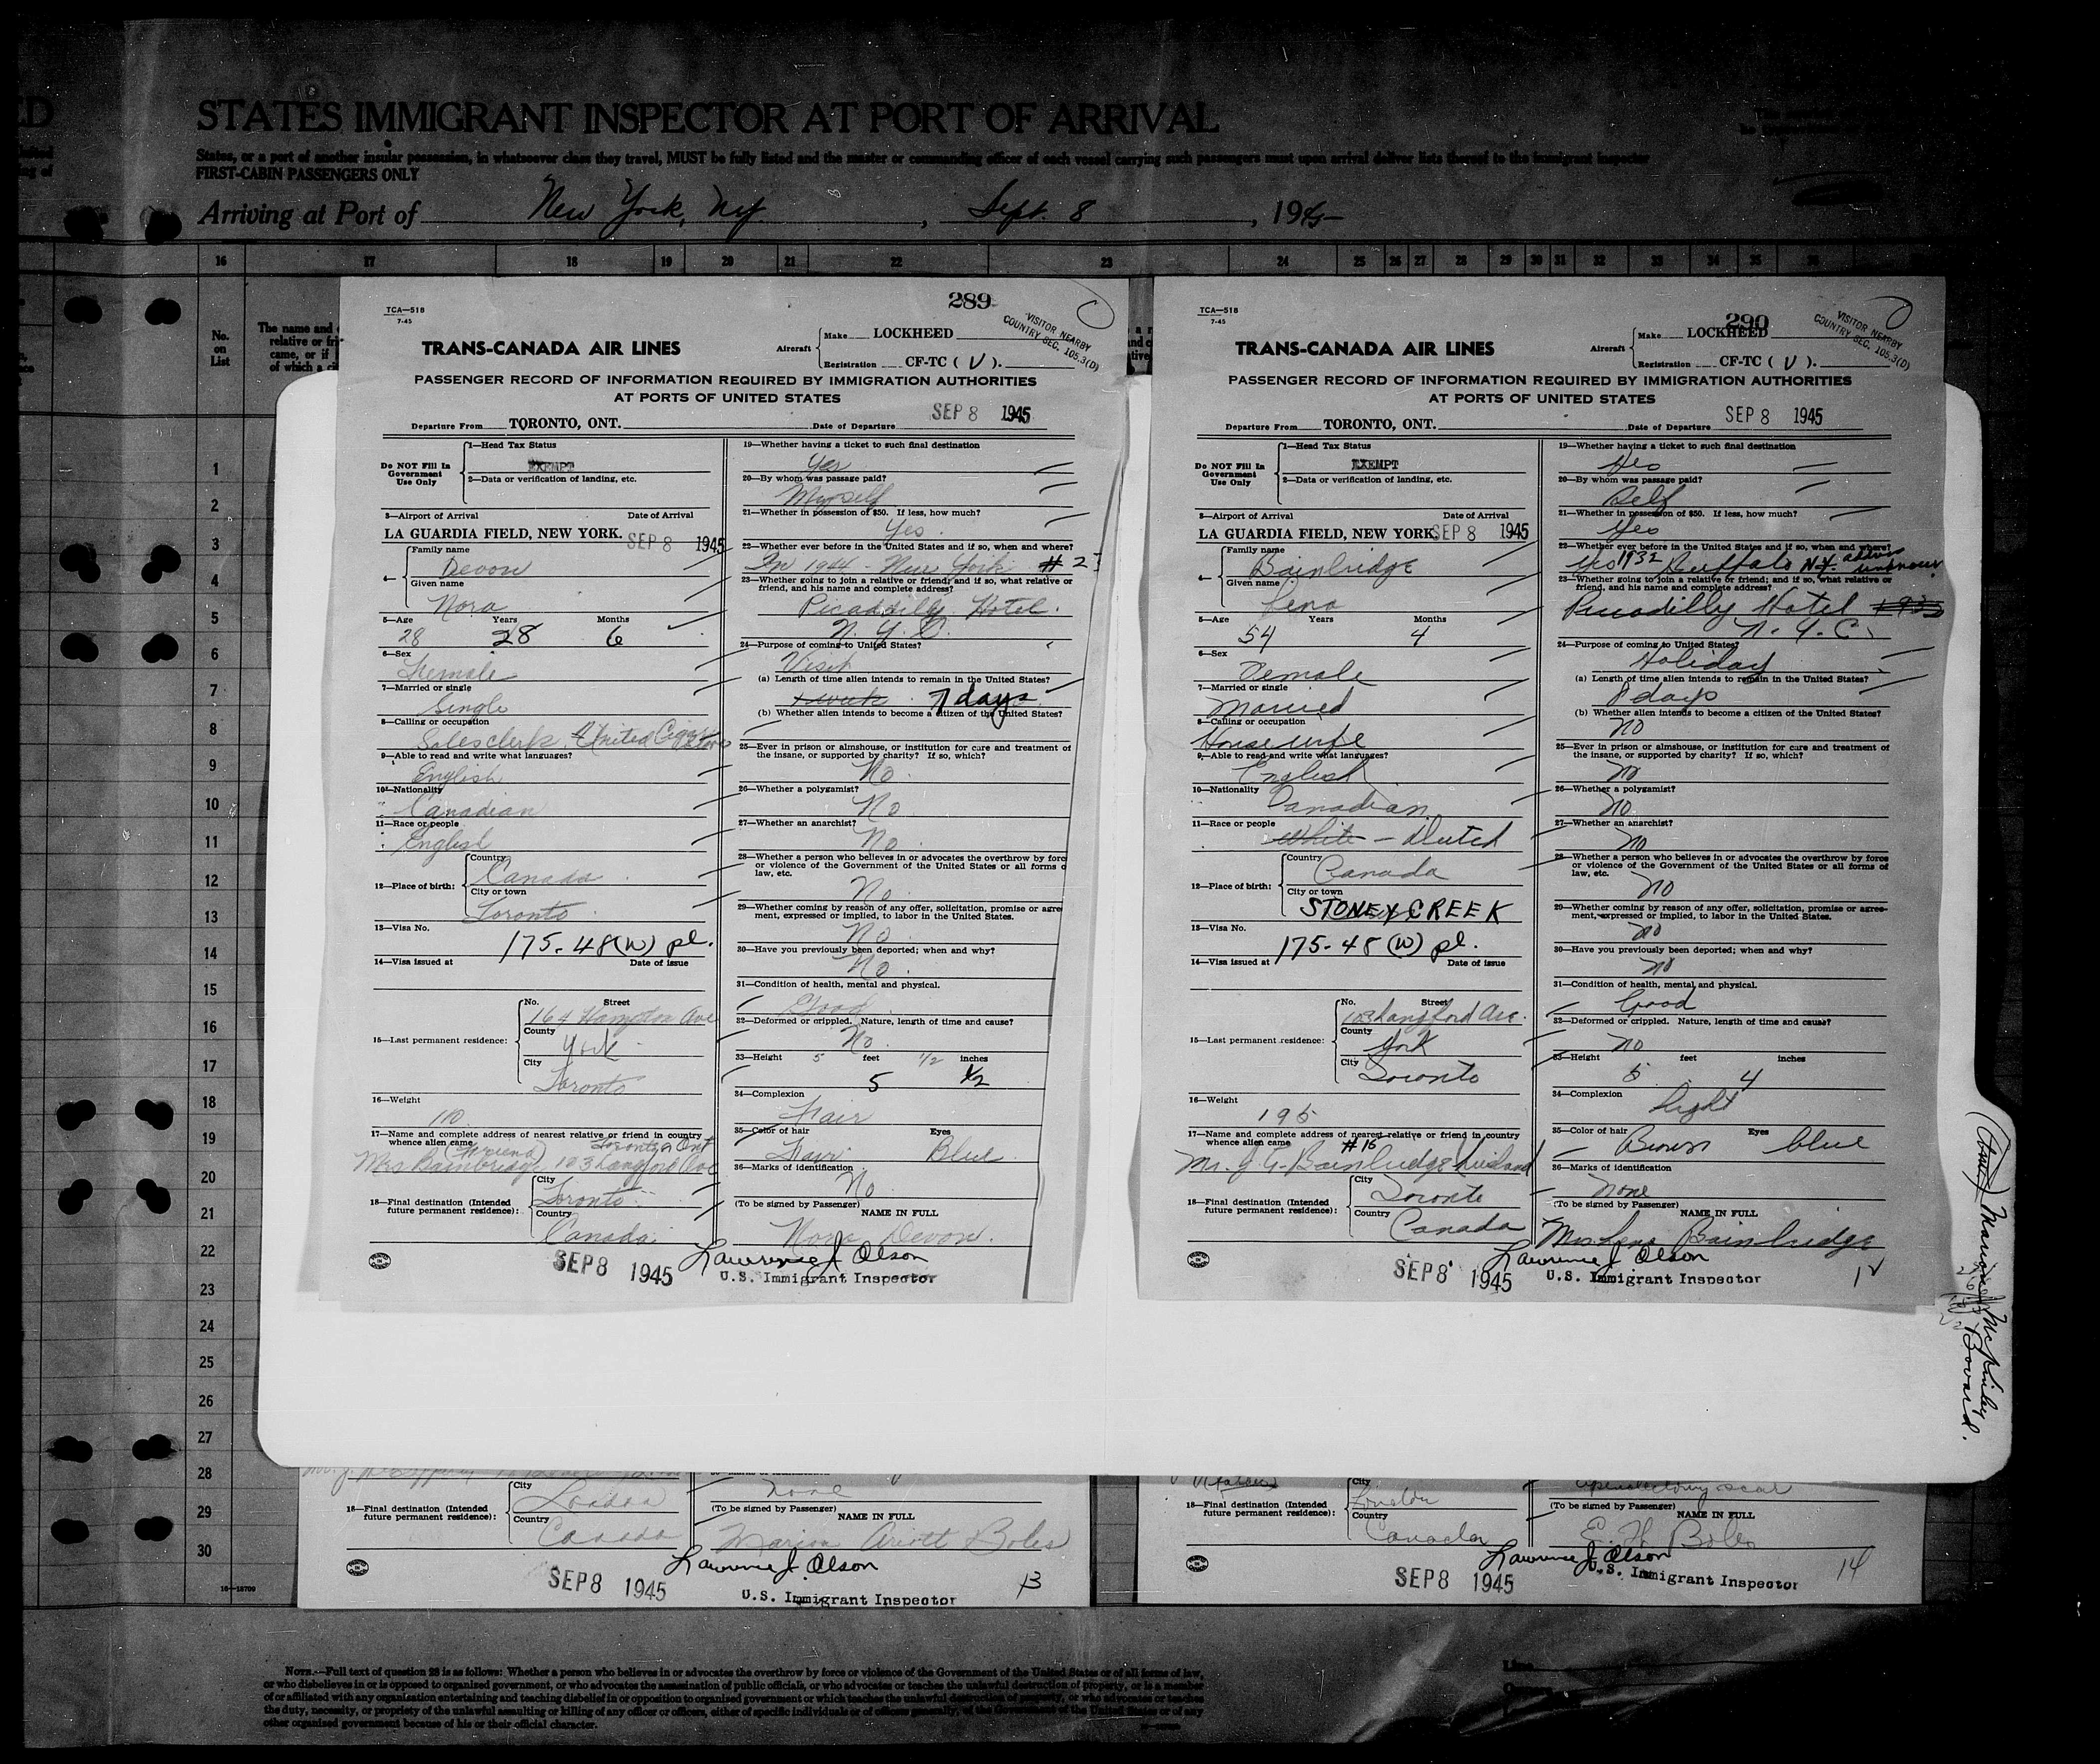 STATES IMMIGRANT INSPECTOR AT PORT OF ARRIVAL
States, or a port of another insular possession, in whatsoever class they travel, MUST be fully listed and the master or commanding officer of each vessel carrying such passengers must upon arrival deliver lists thereof to the immigrant inspector
FIRST-CABIN PASSENGERS ONLY
Arriving at Port of New York, NY. , Sept. 8 , 1945
16 17 18 19 20 21 22 23 24 25 26 27 28 29 30 31 32 33 34 35 36
No. on List
The name and
relative or
came, or if
of which a
1
2
3
4
5
6
7
8
9
10
11
12
13
14
15
16
17
18
19
20
21
22
23
24
25
26
27
28
29
30
16—18700
TCA—518
7-45
289
VISITOR NEARBY
COUNTRY SEC. 105.3(D)
TRANS-CANADA AIR LINES
Aircraft
Make LOCKHEED
Registration CF-TC ( V ).
PASSENGER RECORD OF INFORMATION REQUIRED BY IMMIGRATION AUTHORITIES
AT PORTS OF UNITED STATES
SEP 8 1945
Departure From TORONTO, ONT. Date of Departure
Do NOT Fill In Government Use Only
1—Head Tax Status
EXEMPT
2—Data or verification of landing, etc.
3—Airport of Arrival Date of Arrival
LA GUARDIA FIELD, NEW YORK. SEP 8 1945
4—
Family name
Devon
Given name
Nora
5—Age Years Months
28 28 6
6—Sex
Female
7—Married or single
Single
8—Calling or occupation
Salesclerk United Cigar Stores
9—Able to read and write what languages?
English
10—Nationality
Canadian
11—Race or people
English
12—Place of birth:
Country
Canada
City or town
Toronto
13—Visa No.
175-48(W) pl.
14—Visa issued at Date of issue
15—Last permanent residence:
No. Street
164 Hampton Ave
County
York
City
Toronto
16—Weight
110
17—Name and complete address of nearest relative or friend in country
whence alien came (Friend) Toronto Ont
Mrs Bainbridge 103 Langford Ave
18—Final destination (Intended
future permanent residence):
City
Toronto
Country
Canada
SEP 8 1945
19—Whether having a ticket to such final destination
Yes
20—By whom was passage paid?
Myself
21—Whether in possession of $50. If less, how much?
Yes
22—Whether ever before in the United States and if so, when and where?
In 1944 - New York # 23
23—Whether going to join a relative or friend; and if so, what relative or
friend, and his name and complete address?
Picadilly Hotel.
N.Y.C.
24—Purpose of coming to United States?
Visit
(a) Length of time alien intends to remain in the United States?
1 week 7 days
(b) Whether alien intends to become a citizen of the United States?
25—Ever in prison or almshouse, or institution for cure and treatment of
the insane, or supported by charity? If so, which?
No
26—Whether a polygamist?
No
27—Whether an anarchist?
No
28—Whether a person who believes in or advocates the overthrow by force
or violence of the Government of the United States or all forms o
law, etc.
No
29—Whether coming by reason of any offer, solicitation, promise or agre
ment, expressed or implied, to labor in the United States.
No
30—Have you previously been deported; when and why?
No
31—Condition of health, mental and physical.
Good
32—Deformed or crippled. Nature, length of time and cause?
No
33—Height 5 feet 1/2 inches
5 1/2
34—Complexion
Fair
35—Color of hair Eyes
Fair Blue
36—Marks of identification
No
(To be signed by Passenger)
NAME IN FULL
Nora Devon.
Lawrence J. Olson
U.S. Immigrant Inspector
TCA—518
7-45
290
VISITOR NEARBY
COUNTRY SEC. 105.3(D)
TRANS-CANADA AIR LINES
Aircraft
Make LOCKHEED
Registration CF-TC ( V ).
PASSENGER RECORD OF INFORMATION REQUIRED BY IMMIGRATION AUTHORITIES
AT PORTS OF UNITED STATES
SEP 8 1945
Departure From TORONTO, ONT. Date of Departure
Do NOT Fill In Government Use Only
1—Head Tax Status
EXEMPT
2—Data or verification of landing, etc.
3—Airport of Arrival Date of Arrival
LA GUARDIA FIELD, NEW YORK SEP 8 1945
4—
Family name
Bainbridge
Given name
Lena
5—Age Years Months
54 4
6—Sex
Female
7—Married or single
Married
8—Calling or occupation
Housewife
9—Able to read and write what languages?
English
10—Nationality
Canadian
11—Race or people
White - Dutch
12—Place of birth:
Country
Canada
City or town
STONEY CREEK
13—Visa No.
175-48 (W) pl.
14—Visa issued at Date of issue
15—Last permanent residence:
No. Street
103 Langford Ave.
County
York
City
Toronto
16—Weight
195
17—Name and complete address of nearest relative or friend in country
whence alien came #15
Mr. J. G. Bainbridge husband
18—Final destination (Intended
future permanent residence):
City
Toronto
Country
Canada
SEP 8 1945
19—Whether having a ticket to such final destination
Yes
20—By whom was passage paid?
Self
21—Whether in possession of $50. If less, how much?
Yes
22—Whether ever before in the United States and if so, when and where?
Yes 1932 Buffalo N.Y. address unknown
23—Whether going to join a relative or friend; and if so, what relative or
friend, and his name and complete address?
Piccadilly Hotel 1932
N.Y.C.
24—Purpose of coming to United States?
Holiday
(a) Length of time alien intends to remain in the United States?
8 days
(b) Whether alien intends to become a citizen of the United States?
no
25—Ever in prison or almshouse, or institution for cure and treatment of
the insane, or supported by charity? If so, which?
no
26—Whether a polygamist?
no
27—Whether an anarchist?
no
28—Whether a person who believes in or advocates the overthrow by force
or violence of the Government of the United States or all forms of
law, etc.
no
29—Whether coming by reason of any offer, solicitation, promise or agree-
ment, expressed or implied, to labor in the United States.
no
30—Have you previously been deported; when and why?
no
31—Condition of health, mental and physical.
Good
32—Deformed or crippled. Nature, length of time and cause?
no
33—Height feet inches
5 4
34—Complexion
Light
35—Color of hair Eyes
Brown blue
36—Marks of identification
none
(To be signed by Passenger)
NAME IN FULL
Mrs Lena Bainbridge
Lawrence J. Olson
U.S. Immigrant Inspector
12
(Aunt) Marion McKinley
Bovard.
18—Final destination (Intended
future permanent residence):
City
London
Country
Canada
none
(To be signed by Passenger)
NAME IN FULL
Marion Ariott Boles
Lawrence J. Olson
SEP 8 1945
U.S. Immigrant Inspector
13
18—Final destination (Intended
future permanent residence):
City
London
Country
Canada
appendectomy scar
(To be signed by Passenger)
NAME IN FULL
E. H. Boles
Lawrence J. Olson
SEP 8 1945
U.S. Immigrant Inspector
14
NOTE.—Full text of question 28 is as follows: Whether a person who believes in or advocates the overthrow by force or violence of the Government of the United States or of all forms of law,
or who disbelieves in or is opposed to organized government, or who advocates the assassination of public officials, or who advocates or teaches the unlawful destruction of property, or is a member
of or affiliated with any organization entertaining and teaching disbelief in or opposition to organized government or which teaches the unlawful destruction of property, or who advocates or teaches
the duty, necessity, or propriety of the unlawful assaulting or killing of any officer or officers, either of specific individuals or of officers generally, of the Government of the United States or of any
other organized government because of his or their official character.